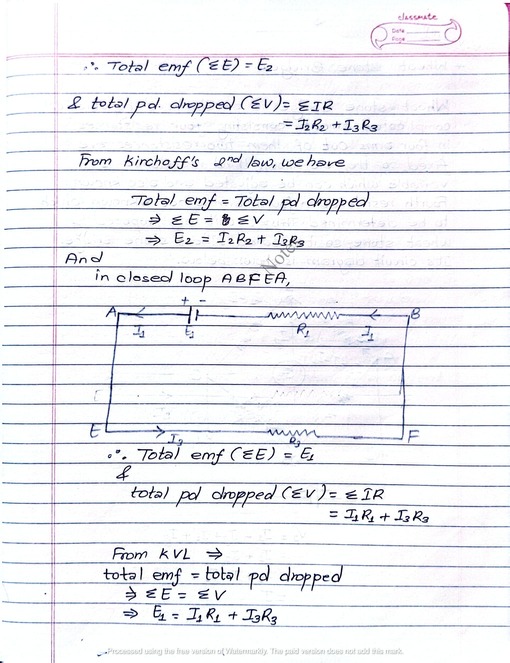 classmate
Date
Page
∴ Total emf (ΣE) = E₂
& total pd. dropped (ΣV) = ΣIR
= I₂R₂ + I₃R₃
From Kirchoff's 2nd law, we have
Total emf = Total pd dropped
⇒ ΣE = ΣV
⇒ E₂ = I₂R₂ + I₃R₃
And
in closed loop ABFEA,
+ -
A B
I₁ E₁ R₁ I₁
E F
I₃ R₃
∴ Total emf (ΣE) = E₁
&
total pd dropped (ΣV) = ΣIR
= I₁R₁ + I₃R₃
From KVL ⇒
total emf = total pd dropped
⇒ ΣE = ΣV
⇒ E₁ = I₁R₁ + I₃R₃
Processed using the free version of Watermarkly. The paid version does not add this mark.